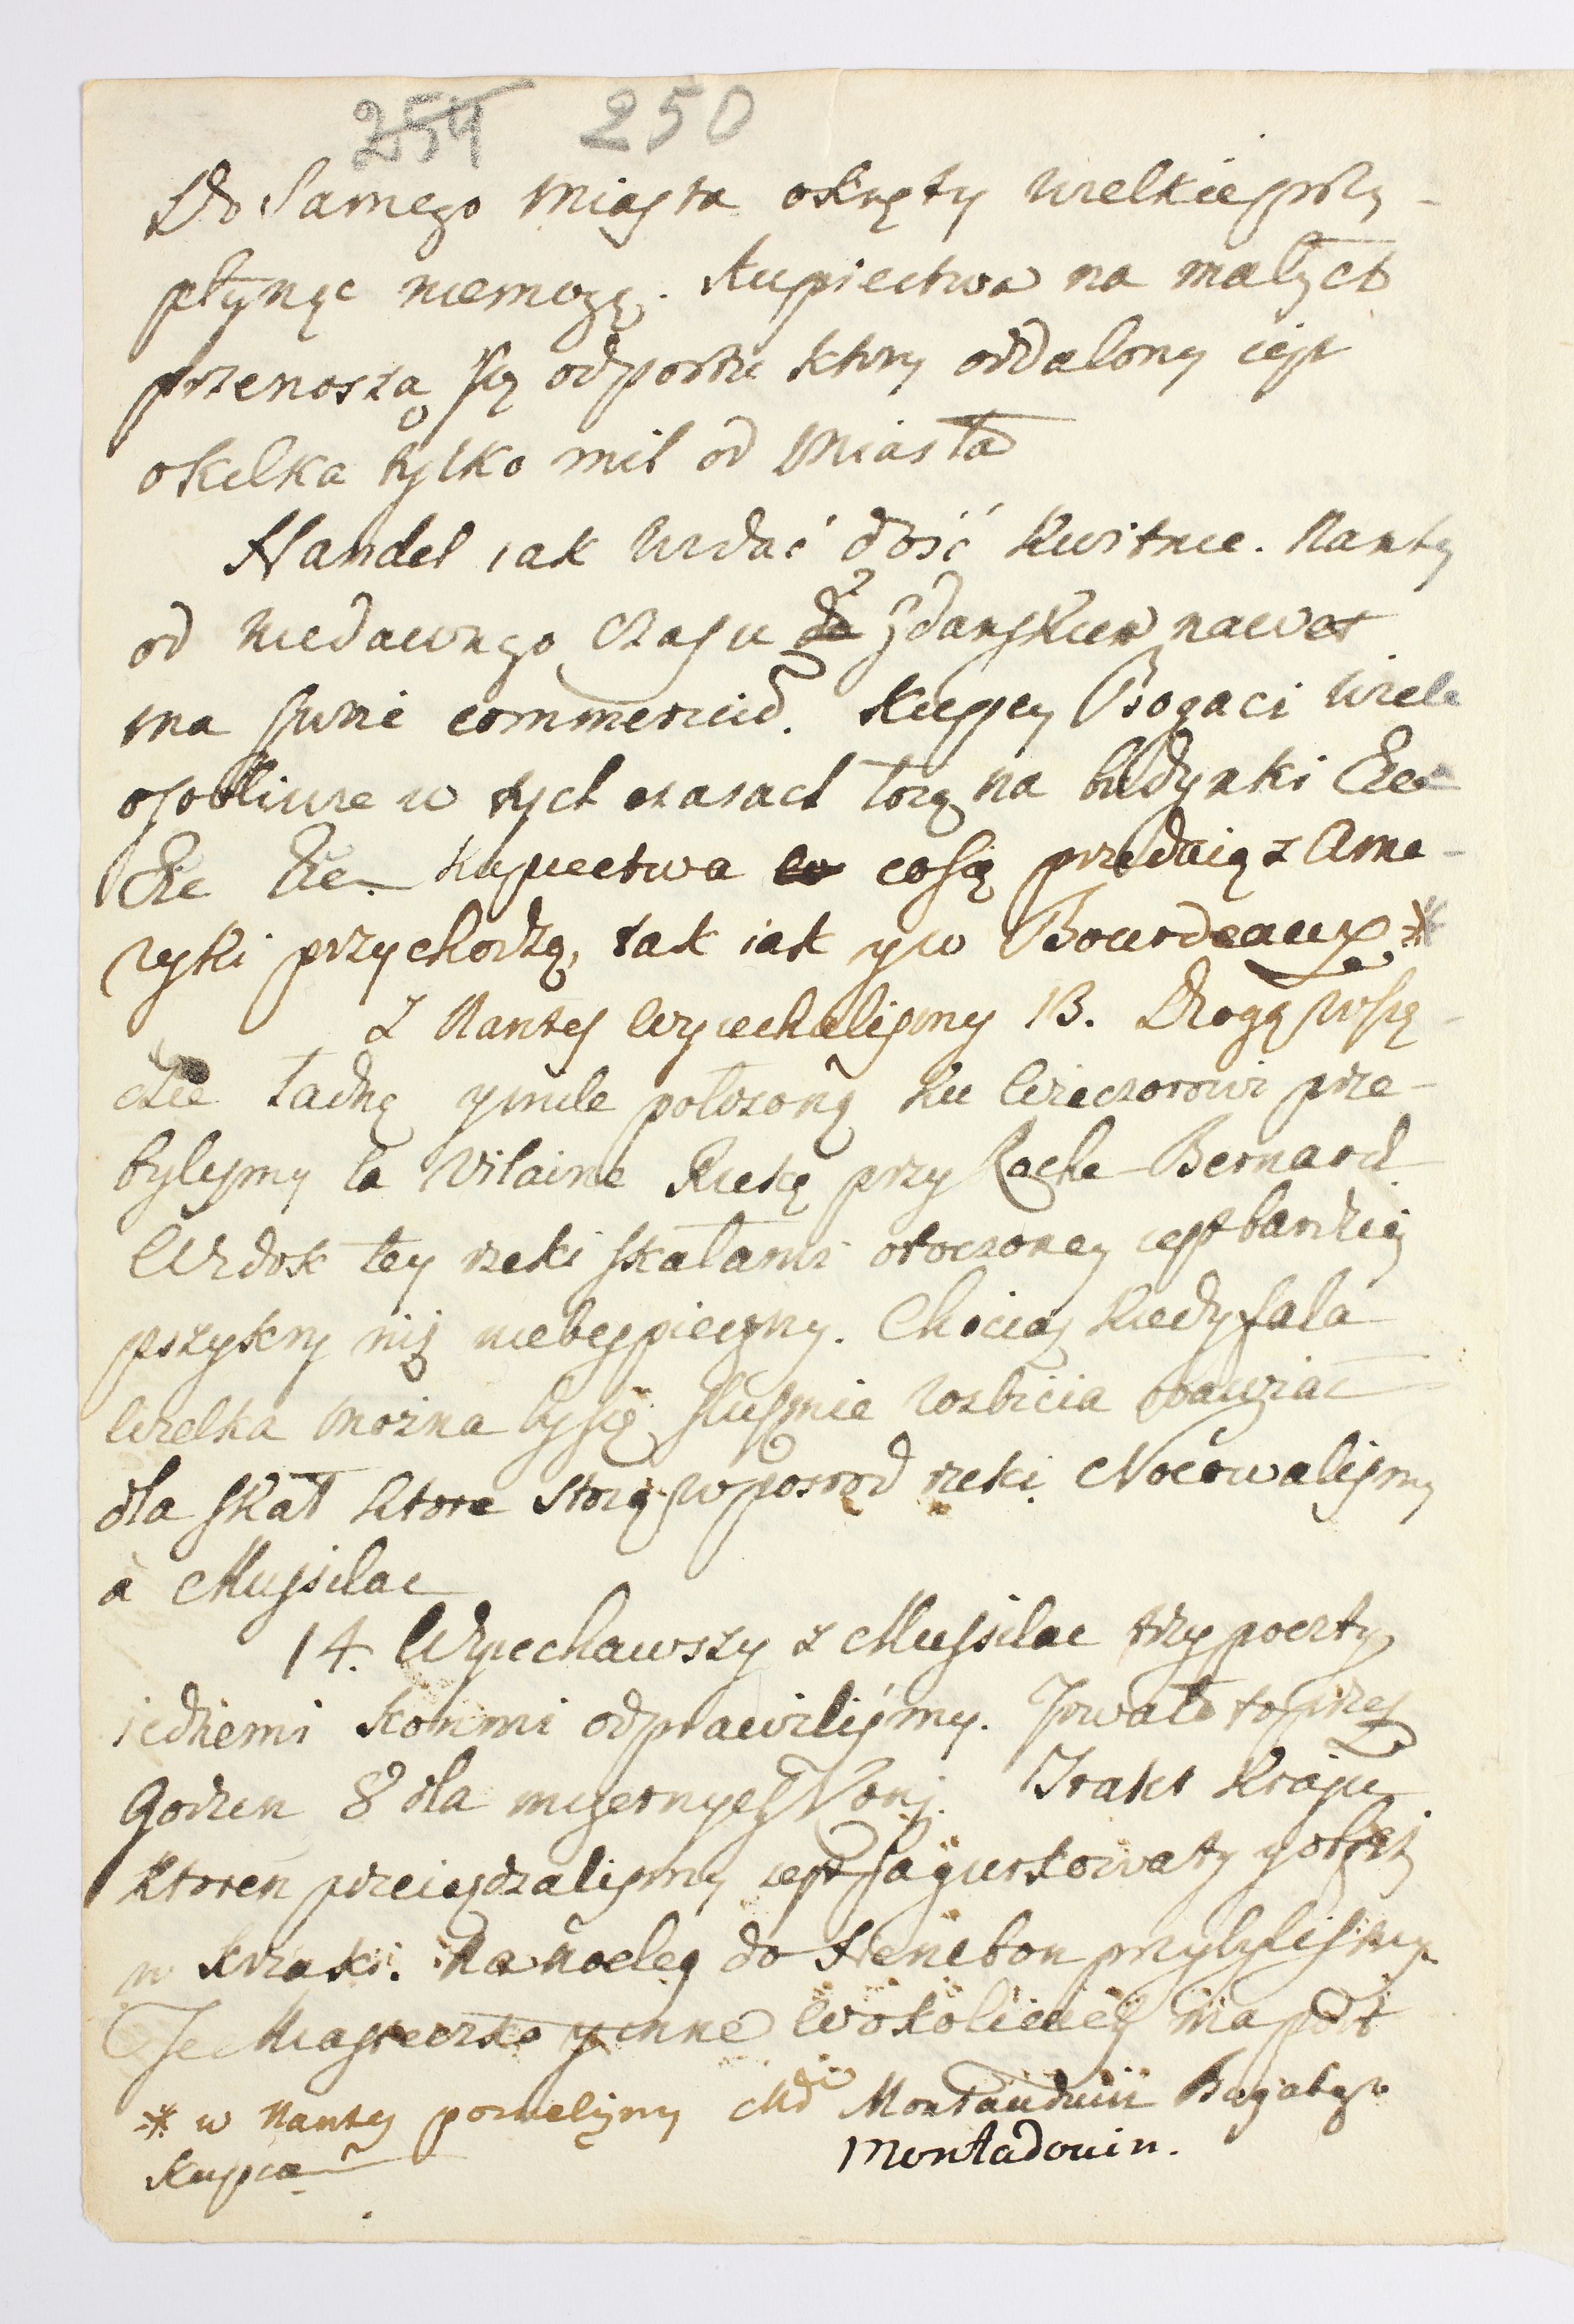 254 250
Do Samego miasta okręty wielkie przy-
płynąć niemogą. Kupiectwa na małych
przenoszą się odportu ktory oddalony iest
okilka tylko mil od Miasta
Handel iak widać dość kwitnie. Nantes
od niedawnego czasu z Gdanskiem nawet
ma swoie commercium. Kupcy Bogaci wiele
osobliwie w tych czasach łożą na budynki Etc
Etc Etc. Kupiectwa co są przedaią z Ame-
ryki przychodzą, tak iak y w Bourdeaux *
Z Nantes wyiechalismy 13. Drogą wszę-
dzie ładną y mile położoną ku wieczorowi prze-
bylismy la Vilaine Rzekę przy Roche-Bernard
Widok tey rzeki skałami otoczoney iest bardziey
przykry niż niebespieczny. Chociaż kiedy fala
wielka możnaby się słusznie rozbicia obawiać
dla skał ktore stoią wposrod rzeki Nocowalismy
à Mussilac
14. Wyiechawszy z Mussilac trzy poczty
iednemi konmi odprawiliśmy. Trwało to przez
Godzin 8 dla mizernych koni. Trakt kraju
ktoren przeieżdzalismy iest pagurkowaty y obfity
w krzaki. Na nocleg do Henebon przybylismy.
Te Miasteczko y inne w okolicach ma port
* w Nantes poznalismy Md Montauduin Bogatego
Kupca Montadouin.